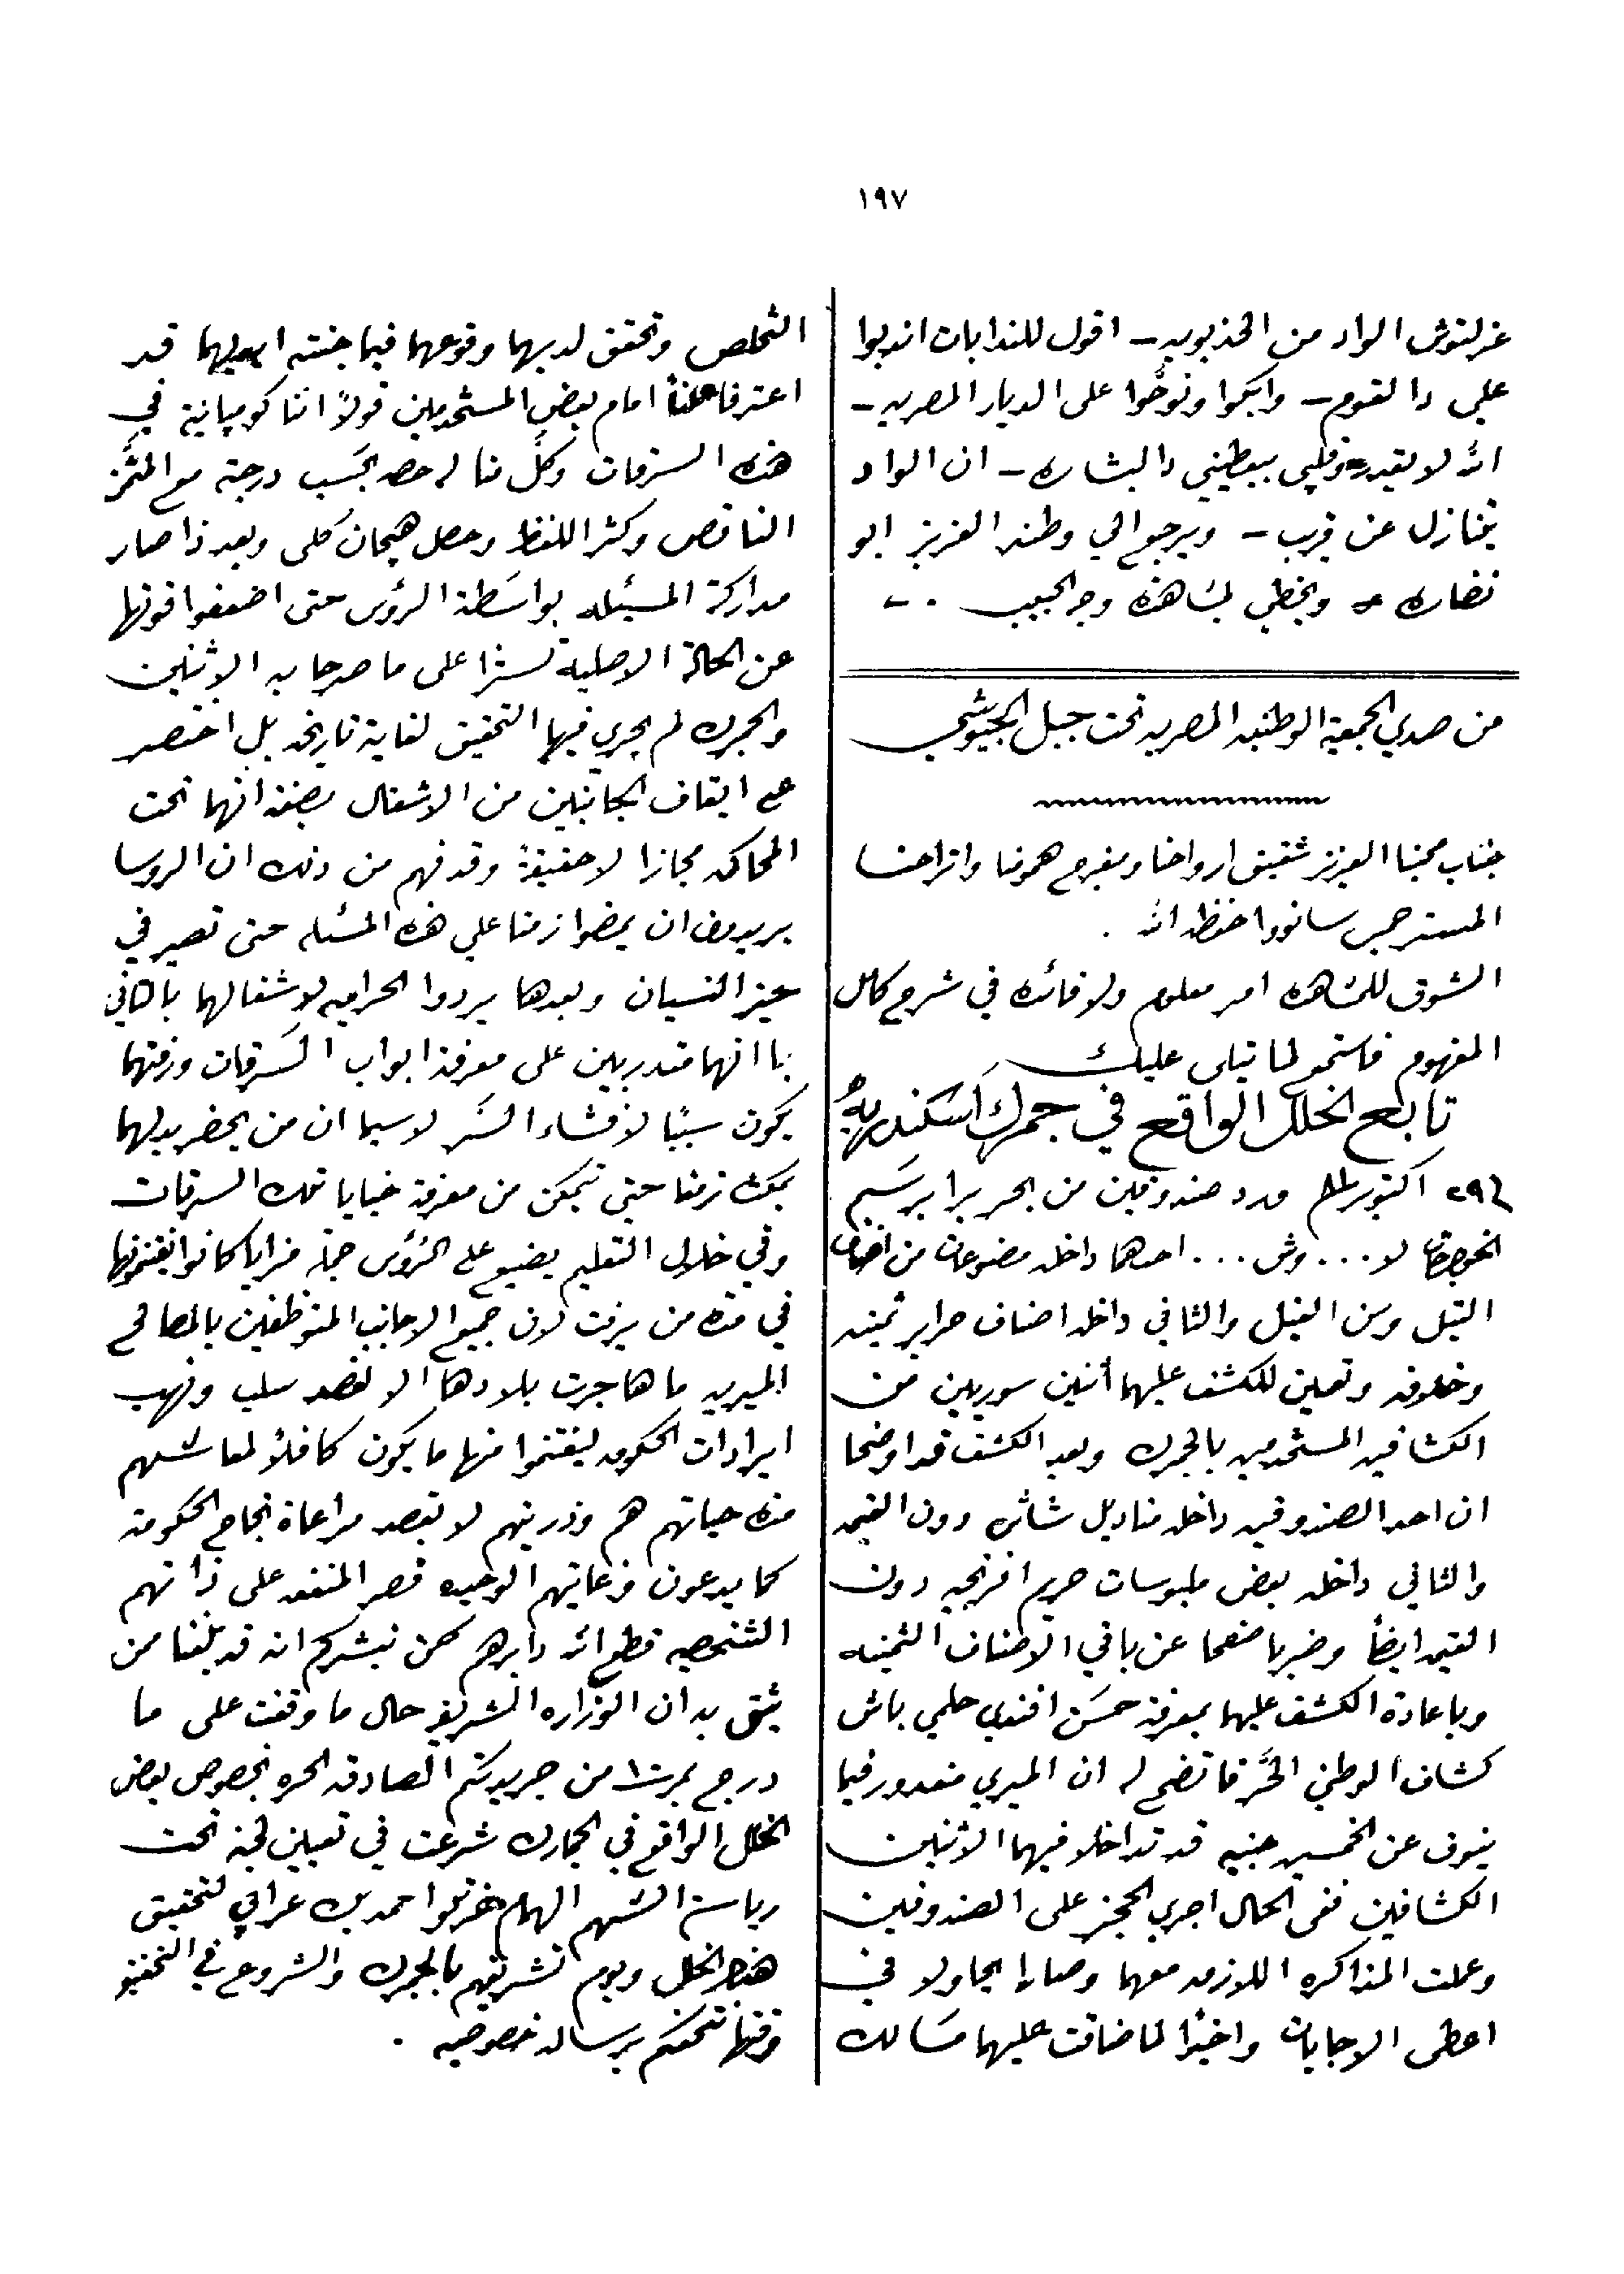 ١٩٧
عزلتوش الواد من الخذيويه – اقول للندابات اندبوا
علي دا القوم – وابكوا ونوحوا على الديار المصريه –
الله لا يقدر وقلبي بيعطيني دا البشاره – ان الواد
يتنازل عن قريب – ويرجع الي وطنه العزيز ابو
نضاره – ويحظي بمشاهدة وجه الحبيب . –
من صدي الجمعية الوطنيه المصريه تحت جبل الجيوشي
جناب محبنا العزيز شقيق ارواحنا ومفرج همومنا واتراحنا
المستر جمس سانووا حفظه الله .
الشوق للمشاهده امر معلوم ولا فائده في شرح كامل
المفهوم فاستمع لما يتلى عليك
تابع الخلل الواقع في جمرك اسكندريه
اكتوبر ورد صندوقين من الحرير برسم
احدهما داخله مصنوعات من
التيل وسن الفيل والثاني داخله اصناف حراير ثمينه
وخلافه وتعين للكشف عليهما أثنين سوريين من
الكشافين المستخدمين بالجمرك وبعد الكشف قد اوضحا
ان احد الصندوقين داخله مناديل شاش دون القيمه
والثاني داخله بعض ملبوسات حريم افرنجيه دون
القيمه ايضاً وضربا صفحا عن باقي الاصناف الثمينه
وباعادة الكشف عليهما بمعرفة حسن افندي حلمي باش
كشاف الوطني الحر فاتضح له ان الميري مغدور فيما
ينوف عن الخمسين جنيه قد تداخلا فيهما الاثنين
الكشافين ففي الحال اجري الحجز على الصندوقين
وعملت المذاكره اللازمه معهما وصارا يحاولا في
اعطى الاجابات واخيراً لما ضاقت عليهما مسالك
التخلص وتحقق لديهما وقوعهما فيما جنته ايديهما قد
اعترفا علناً امام بعض المستخدمين قولاً اننا كومپانية في
هذه السرقات وكلٌ منا له حصه بحسب درجته مع المثمن
الناقص وكثر اللغط وحصل هيجان كلى وبعد ذا صار
مداركة المسئله بواسطة الرؤس حتى اضعفوا قوتها
عن الحالة الاصلية تستراً على ما صرحا به الاثنين
والجمرك لم يجري فيها التحقيق لغاية تاريخه بل اختصر
على ايقاف الجانيين من الاشغال بصفة انهما تحت
المحاكمه مجازا لا حقيقة وقد فهم من ذلك ان الروسا
يريدون ان يمضوا زمنا علي هذه المسئله حتى تصير في
حيز النسيان وبعدها يردوا الحراميه لاشغالهما بالثاني
بما انهما متدربين على معرفة ابواب السرقات ورفتهما
يكون سبباً لافشاء السر لا سيما ان من يحضر بدلهما
يمكث زمنا حتى يتمكن من معرفة خبايا تلك السرقات
وفي خلال التعليم يضيع على الرؤس جملة مزايا كانوا يغتنمونها
في مدة من يرفت لان جميع الاجانب المتوظفين بالمصالح
الميريه ما هاجرت بلادها الا لقصد سلب ونهب
ايرادات الحكومه ليغتنموا منها ما يكون كافلاً لمعاشهم
مدة حياتهم هم وذريتهم لا بقصد مراعاة نجاح الحكومة
كما يدعون وغايتهم الوحيده قصر المنفعه على ذاتهم
الشخصيه قطع الله دابرهم نحن نبشركم انه قد بلغنا ممن
يثق به ان الوزاره الشريفه حال ما وقفت على ما
درج بنمرة ١٠ من جريدتكم الصادقه الحره بخصوص بعض
الخلل الواقع في الجمارك شرعت في تعيين لجنة تحت
رياسة الشهم الهمام احمد بك عرابي لتحقيق
هذا الخلل ويوم تشريفهم بالجمرك والشروع في التحقيق
وقتها نتحفكم برساله خصوصيه .